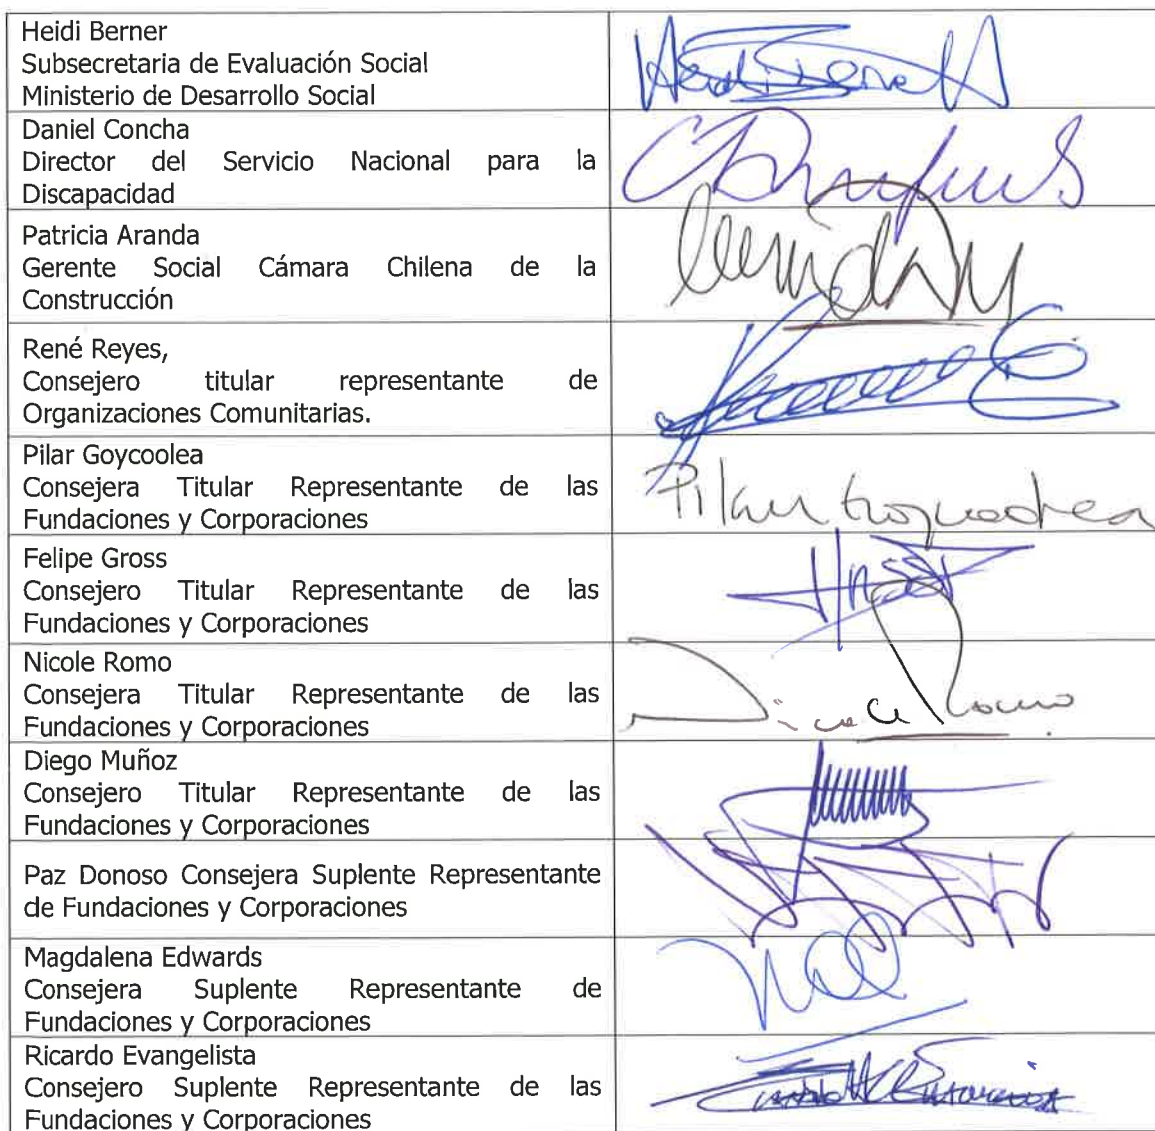 Heidi Berner
Subsecretaria de Evaluación Social
Ministerio de Desarrollo Social
Daniel Concha
Director del Servicio Nacional para la
Discapacidad
Patricia Aranda
Gerente Social Cámara Chilena de la
Construcción
René Reyes,
Consejero titular representante de
Organizaciones Comunitarias.
Pilar Goycoolea
Consejera Titular Representante de las
Fundaciones y Corporaciones
Pilar Goycoolea
Felipe Gross
Consejero Titular Representante de las
Fundaciones y Corporaciones
Nicole Romo
Consejera Titular Representante de las
Fundaciones y Corporaciones
Nicole Romo
Diego Muñoz
Consejero Titular Representante de las
Fundaciones y Corporaciones
Paz Donoso Consejera Suplente Representante
de Fundaciones y Corporaciones
Magdalena Edwards
Consejera Suplente Representante de
Fundaciones y Corporaciones
Ricardo Evangelista
Consejero Suplente Representante de las
Fundaciones y Corporaciones